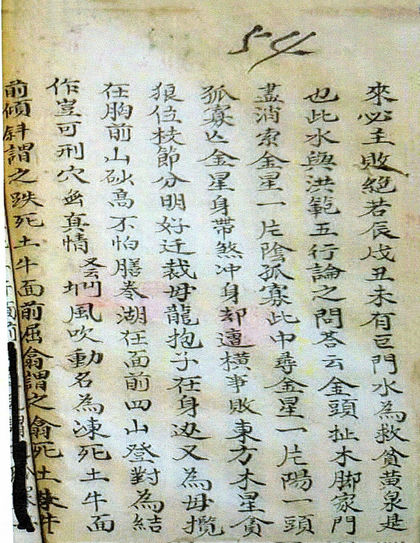 54
來必主敗絕若辰戌丑未有巨門水為救貧黃泉是
也此水與洪範五行論之問答云金頭扯木腳家門
盡消索金星一片陰孤寡此中尋金星一片陽一頭
孤寡亡金星身帶煞冲身却遭橫事敗東方木星貪
狼位枝節分明好迁裁母龍抱子在身边又為母攬
在胸前山砂高不怕膳卷湖在面前四山登對為結
作豈可刑穴無真情又云凹风吹動名為凍死土牛面
前傾斜謂之跌死土牛面前屈龠謂之龠死土牛